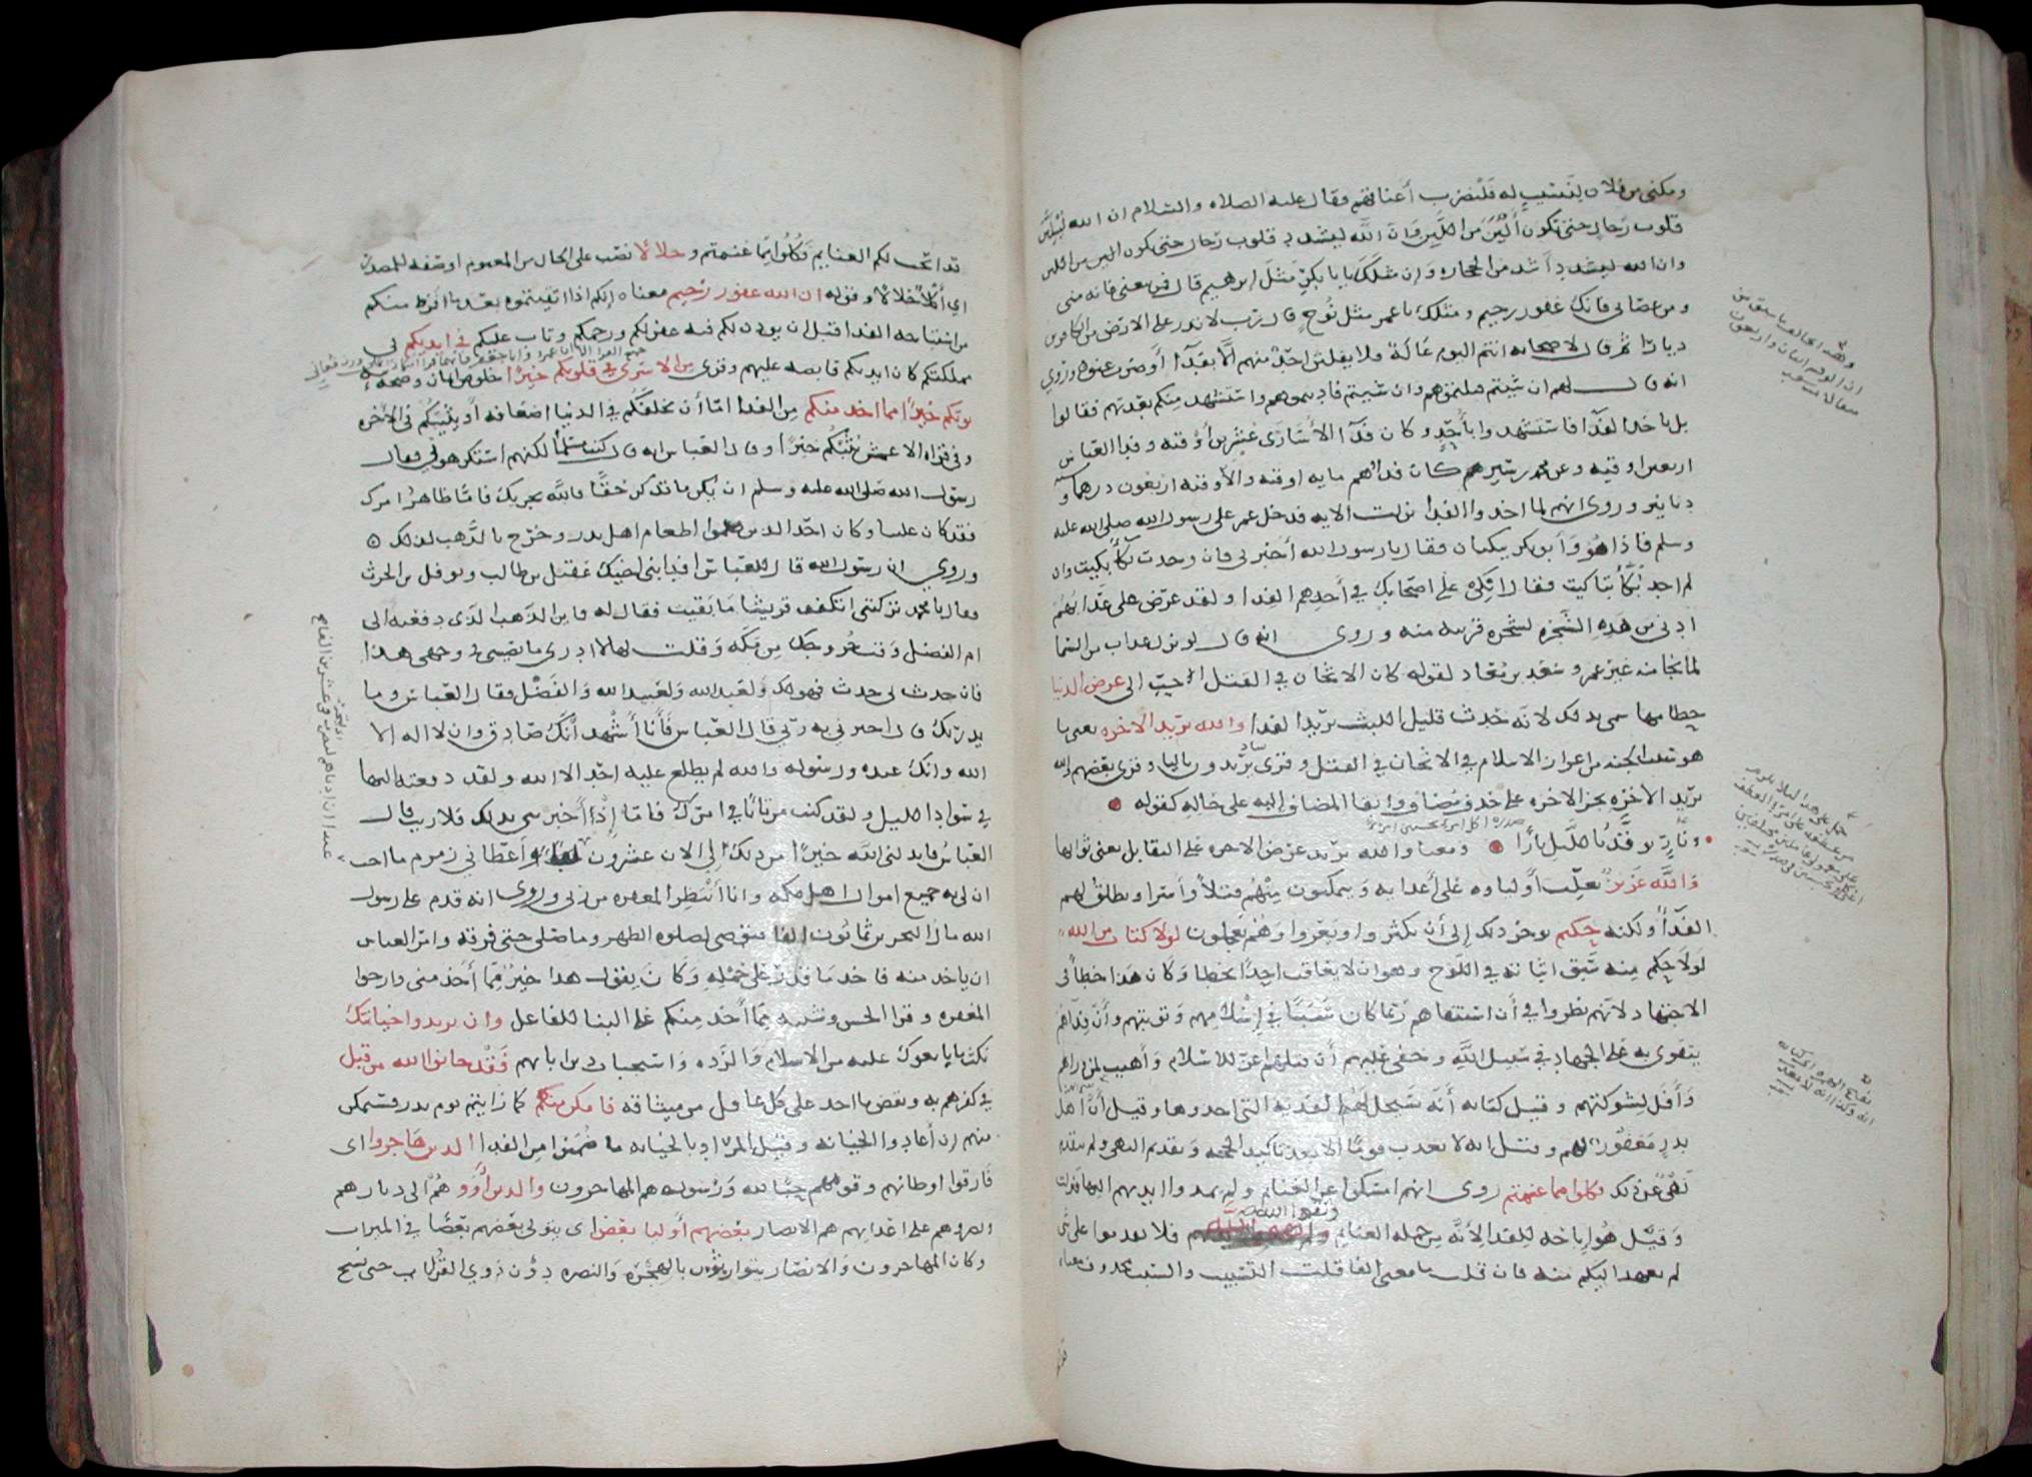 ومكنى من فلان لنسيب له فلنضرب أعناقهم فقال عليه الصلاه والسلام ان الله ليلين
قلوب رجال حتى تكون ألين من اللبن وان الله ليشدد قلوب رجال حتى يكون
وان الله ليشدد أشد من الحجاره وان مثلك يا با بكر مثل ابرهيم قال فمن تبعنى فانه منى
ومن عصانى فانك غفور رحيم ومثلك يا عمر مثل نوح قال رب لا تذر على الارض من الكافرين
ديارا ثم قال لاصحابه انتم اليوم عالة فلا يفلتن احد منهم الا بفدآ أو ضرب عنق وروي
انه قال لهم ان شيتم قتلتموهم وان شيتم فاديتموهم واستشهد منكم بعدتهم فقالوا
بل ناخذ الفدآ فاستشهدوا بأحد وكان فدآ الأسارى عشرين أوقيه وفدا العباس
اربعين اوقيه وعن محمد بن سيرين كان فداهم مايه اوقيه والأوقيه اربعون درهما وسته
دنانير وروى انهم لما اخذوا الفدا نزلت الايه فدخل عمر على رسول الله صلى الله عليه
وسلم فاذا هو وأبو بكر يبكيان فقال يا رسول الله أخبرنى فان وجدت بكآ بكيت وان
لم اجد بكآ تباكيت فقال ابكى على اصحابك في أخذهم الفدا ولقد عرض على عذابهم
ادنى من هذه الشجره لشجره قريبه منه وروى انه قال لو نزل عذاب من السما
لما نجا منه غير عمر وسعد بن معاذ لقوله كان الاثخان في القتل احب الى عرض الدنيا
حطامها سمى بذلك لانه حدث قليل اللبث يريد الفدا والله يريد الاخره يعنى ما
هو سبب الجنه من اعزاز الاسلام في الاثخان في القتل وقرى يريدون باليا وقرى بعضهم والله
يريد الاخره بجر الاخره على حذف مضاف وابقا المضاف إليه على حاله كقوله
ونار توقد بالليل نارا ومعناه والله يريد عرض الاخره على التقابل يعنى ثوابها
والله عزيز يغلب أولياه على أعدايه ويتمكنون منهم قتلا وأسرا ويطلق لهم
الفدآ ولكنه حكيم يوخر ذلك إلى أن يكثروا ويعزوا وهم يعجلون لولا كتاب من الله
لولا حكم منه سبق اثباته في اللوح وهو ان لا يعاقب احدا بخطا وكان هذا خطأ فى
الاجتهاد لانهم نظروا في أن استبقاهم ربما كان سببا في إسلامهم وتوبتهم وأن فداهم
يتقوى به على الجهاد في سبيل الله وخفى عليهم أن قتلهم اعز للاسلام وأهيب لمن وراهم
وأفل لشوكتهم وقيل كتابه أنه سيحل لهم الفديه التى اخذوها وقيل أن اهل
بدر مغفور لهم وقيل انه لا يعذب قوما الا بعد تاكيد الحجه وتقديم النهى ولم يتقدم
نهى عن ذلك فكلوا مما غنمتم روى انهم امسكوا عن الغنايم ولم يمدوا ايديهم اليها فنزلت
واتقوا الله
وقيل هو إباحه للفدا لأنه من جمله الغنايم فلا تقدموا على شى
لم يعهد اليكم فيه فان قلت ما معنى الفا قلت التسبيب والسبب محذوف معناه
قد ابحت لكم الغنايم فكلوا مما غنمتم وحلالا نصب على الحال من المغنوم او صفه للمصدر
اي أكلا حلالا وقوله ان الله غفور رحيم معناه إنكم اذا اتقيتموه بعد ما فرط منكم
من استباحه الفدا قبل ان يوذن لكم فيه غفر لكم ورحمكم وتاب عليكم في ايديكم في
ملكتكم كان ايديكم قابضه عليهم وقرى من الاسرى فى قلوبكم خيرا خلوص ايمان وصحه نيه
يوتكم خيرا مما اخذ منكم من الفدا اما أن يخلفكم في الدنيا اضعافه أو يثيبكم فى الاخره
وفى قراه الاعمش يثبكم خيرا وعن العباس انه قال كنت مسلما لكنهم استكرهونى فقال
رسول الله صلى الله عليه وسلم ان يكن ما تذكر حقا فالله يجزيك فاما ظاهر امرك
فقد كان علينا وكان احد الذين ضمنوا اطعام اهل بدر وخرج بالذهب لذلك
وروي ان رسول الله قال للعباس افد ابنى اخيك عقيل بن طالب ونوفل بن الحرث
فقال يا محمد تركتنى اتكفف قريشا ما بقيت فقال له فاين الذهب الذى دفعته الى
ام الفضل وقت خروجك من مكه وقلت لها لا ادرى ما يصيبنى فى وجهى هذا
فان حدث بى حدث فهو لك ولعبد الله ولعبيد الله والفضل فقال العباس وما
يدريك قال اخبرنى به ربى قال العباس فأنا أشهد أنك صادق وان لا اله الا
الله وانك عبده ورسوله والله لم يطلع عليه احد الا الله ولقد دفعته اليها
في سواد الليل ولقد كنت مرتابا في امرك فاما إذا أخبرتنى بذلك فلا ريب قال
العباس فابدلنى الله خيرا من ذلك لى الان عشرون عبدا وأعطانى زمزم ما احب
ان لى بها جميع اموال اهل مكه وانا أنتظر المغفره من ربى وروى انه قدم على رسول
الله مال البحرين ثمانون الفا فتوضى لصلوه الظهر وما صلى حتى فرقه وامر العباس
ان ياخذ منه فاخذ ما قدر على حمله وكان يقول هذا خير مما أخذ منى وارجوا
المغفره وقرا الحسن وشيبه مما أخذ منكم على البنا للفاعل وان يريدوا خيانتك
نكث ما بايعوك عليه من الاسلام والرده واستحباب دين ابايهم فقد خانوا الله من قبل
في كفرهم به ونقض ما اخذ على كل عاقل من ميثاقه فامكن منهم كما رايتم يوم بدر فسيمكن
منهم إن أعادوا الخيانه وقيل المراد بالخيانه منع ما ضمنوا من الفدا الذين هاجروا اى
فارقوا اوطانهم وقومهم حبا لله ورسوله هم المهاجرون والذين آووهم الى ديارهم
ونصروهم على اعدايهم هم الانصار بعضهم أوليا بعض اى يتولى بعضهم بعضا في الميراث
وكان المهاجرون والانصار يتوارثون بالهجره والنصره دون ذوي القرابات حتى نسخ